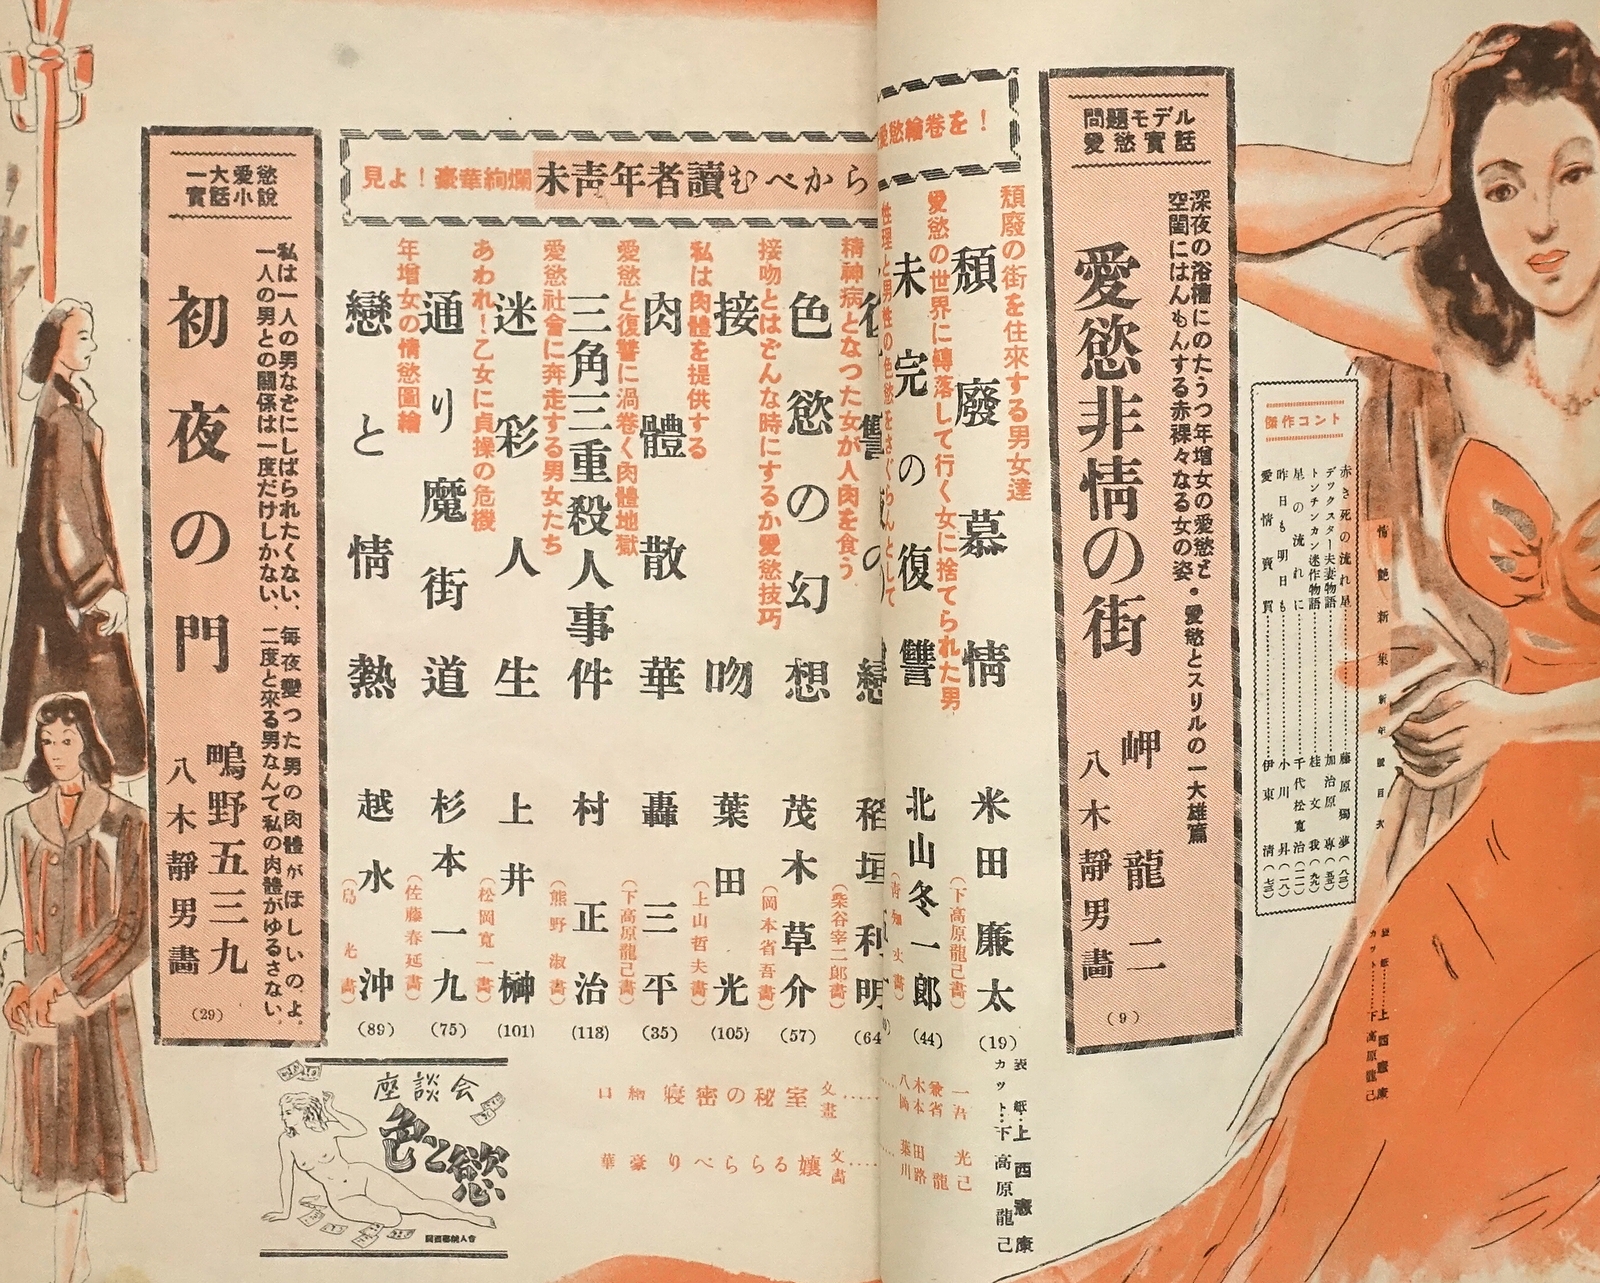 問題モデル
愛慾實話
深夜の浴槽にのたうつ年増女の愛慾と
空閨にはんもんする赤裸々なる女の姿・愛慾とスリルの一大雄篇
愛慾非情の街
岬 龍二
八木靜男畵
(9)
傑作コント
赤き死の流れ星 藤原獨夢(八三)
デツクスター夫妻物語 加治原 專(五七)
トンチンカン迷作物語 桂 文我(九九)
星の流れに 千代松寬治(二二)
昨日も明日も 小川 昇(一八)
愛情賣買 伊東 淸(七三)
情艶新集 新年號目次
表紙 上西憲康
カツト 下高原龍己
愛慾繪卷を!
見よ!豪華絢爛
未靑年者讀むべから
頽廢の街を往來する男女達
頽廢慕情
米田廉太
(下高原龍己畵)
(19)
愛慾の世界に轉落して行く女に捨てられた男
未完の復讐
北山冬一郎
(44)
性理と男性の色慾をさぐらんとして
稻垣利明
(柴谷宰二郎畵)
(64
精神病となつた女が人肉を食う
色慾の幻想
茂木草介
(岡本省吾畵)
(57)
接吻とはどんな時にするか愛慾技巧
接吻
葉田 光
(上山哲夫畵)
(105)
私は肉體を提供する
肉體散華
轟 三平
(下高原龍己畵)
(35)
愛慾と復讐に渦卷く肉體地獄
三角三重殺人事件
村 正治
(熊野 淑畵)
(113)
愛慾社會に奔走する男女たち
迷彩人生
上井 榊
(松岡寬一畵)
(101)
あわれ!乙女に貞操の危機
通り魔街道
杉本一九
(佐藤春延畵)
(75)
年增女の情慾圖繪
戀と情熱
越水 沖
(島 光畵)
(89)
表紙…上西憲康
カツト…下高原龍己
口繪 寢密の秘室 文畫
豪華 りべららる孃 文畵
一大愛慾
實話小說
私は一人の男などにしばられたくない、每夜變つた男の肉體がほしいのよ、
一人の男との關係は一度だけしかない、二度と來る男なんて私の肉體がゆるさない、
初夜の門
鴫野五三九
八木靜男畵
(29)
座談会
色と慾